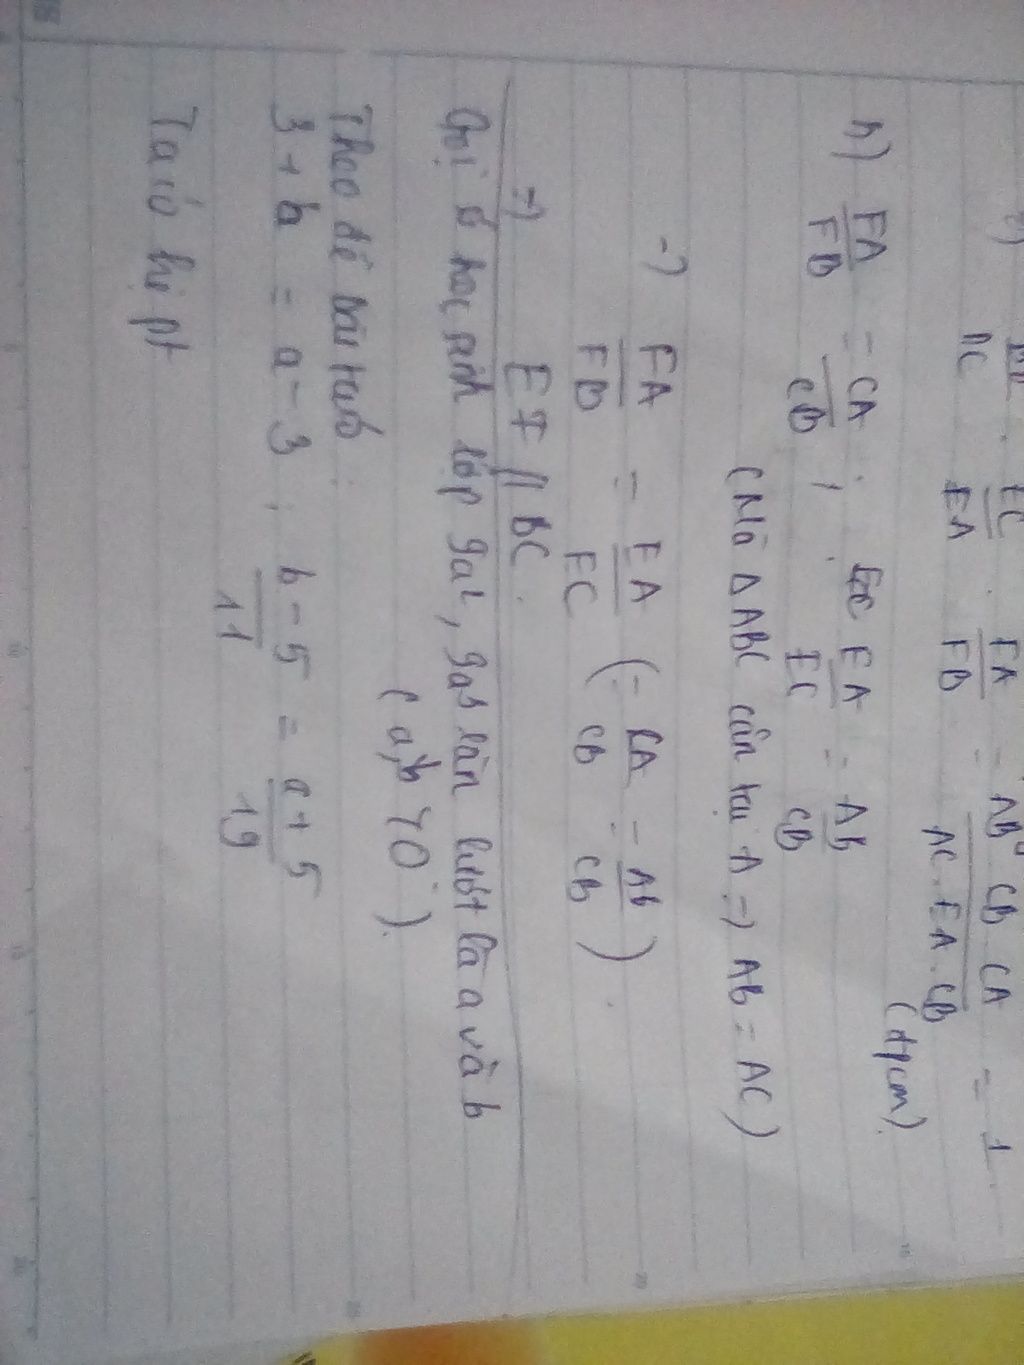 EC/EA . FA/FB = AB . CB . CA / AC . EA . CB = 1
(đpcm)
h) FA/FB = CA/CB ; EA/EC = AB/CB
(Mà Δ ABC cân tại A => AB = AC)
=> FA/FB = EA/EC (= CA/CB = AB/CB).
=> EF // BC.
Gọi số học sinh lớp 9a2, 9a3 lần lượt là a và b
(a, b > 0).
Theo đề bài ta có:
3 + b = a - 3 ; b - 5/11 = a + 5/19
Ta có hệ pt